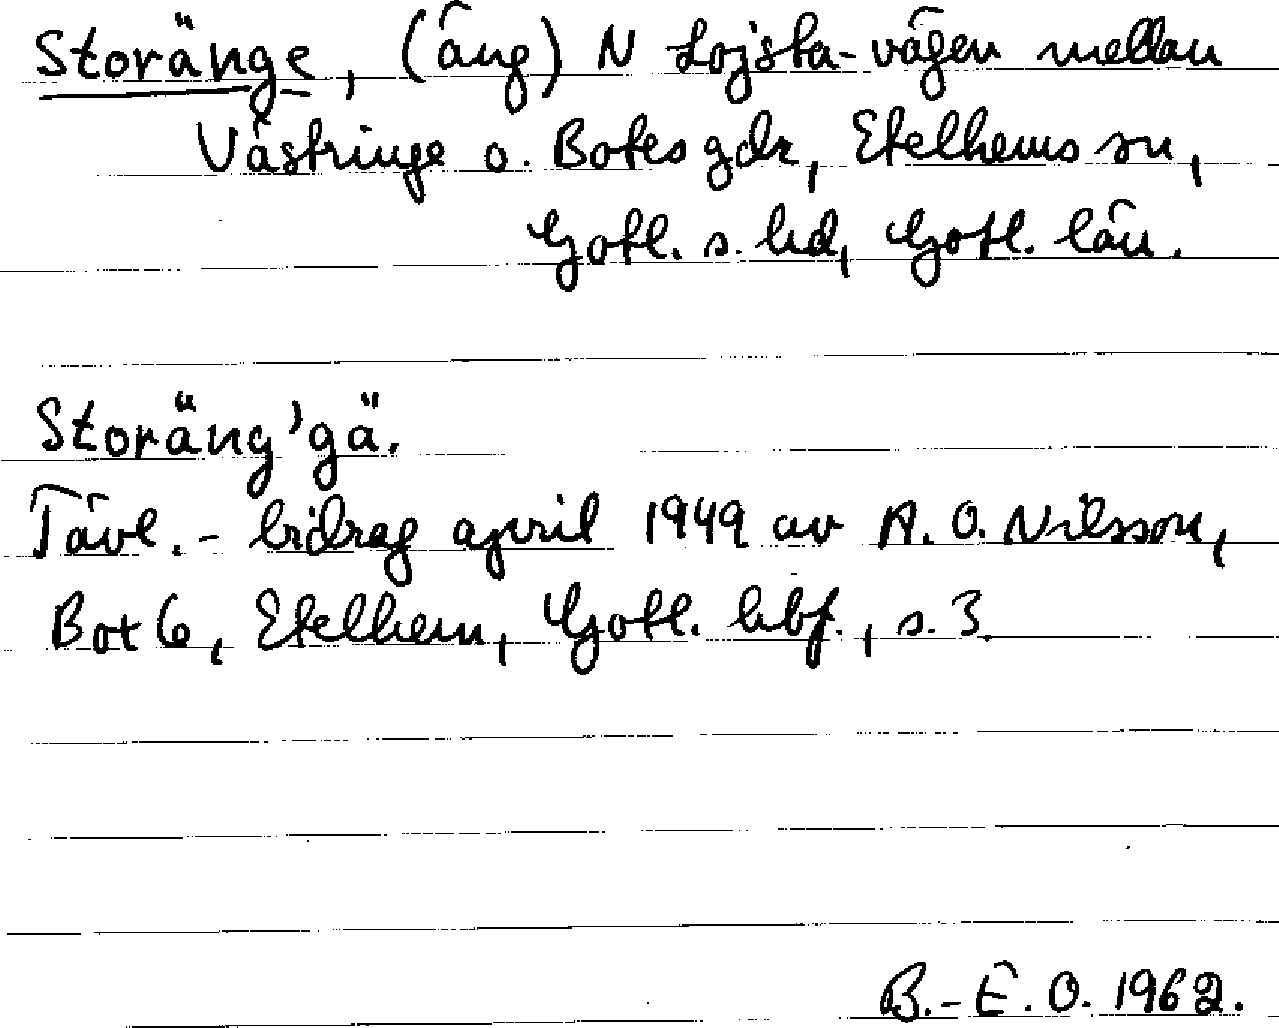 Storänge, (äng) N Lojsta-vägen mellan
Västringe o. Botes gdr, Etelhems sn,
Gotl. s. hd, Gotl. län.
Storäng'gä.
Tävl.- bidrag april 1949 av A. O. Nilsson,
Bote, Etelhem, Gotl. hbf., s. 3.
B.-E. O. 1962.